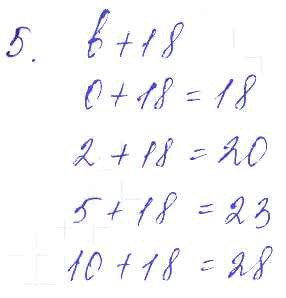 5. b + 18
0 + 18 = 18
2 + 18 = 20
5 + 18 = 23
10 + 18 = 28